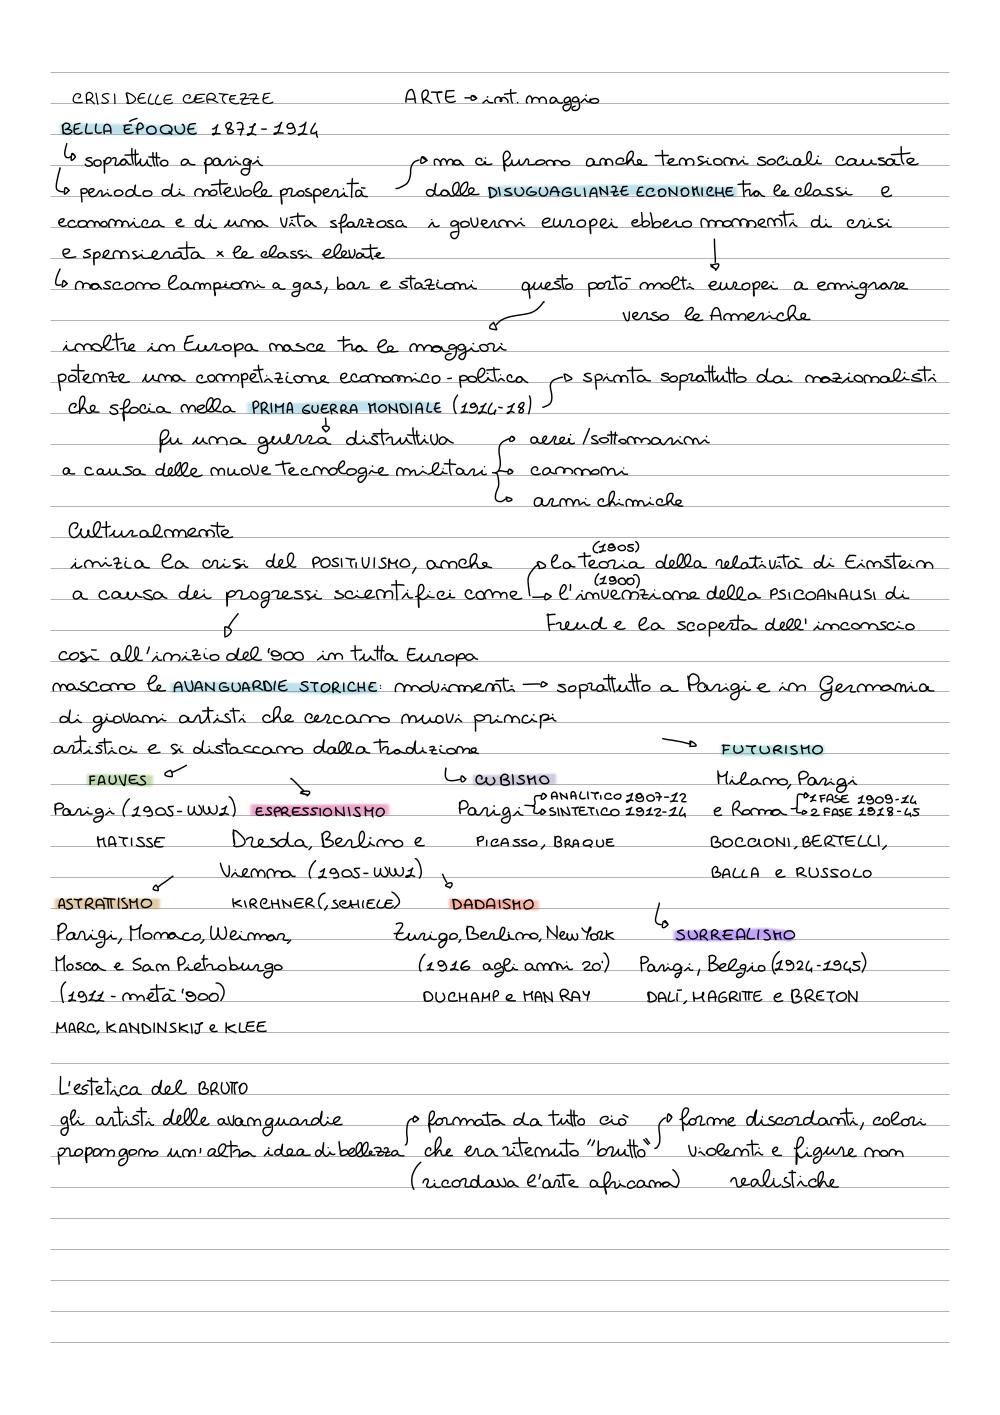 CRISI DELLE CERTEZZE ARTE → int. maggio
BELLA ÉPOQUE 1871-1914
↳ soprattutto a parigi → ma ci furono anche tensioni sociali causate
↳ periodo di notevole prosperità dalle DISUGUAGLIANZE ECONOMICHE tra le classi e
economica e di una vita sfarzosa i governi europei ebbero momenti di crisi
e spensierata × le classi elevate
↳ nascono lampioni a gas, bar e stazioni questo portò molti europei a emigrare
verso le Americhe
inoltre in Europa nasce tra le maggiori
potenze una competizione economico-politica → spinta soprattutto dai nazionalisti
che sfocia nella PRIMA GUERRA MONDIALE (1914-18)
fu una guerra distruttiva → aerei/sottomarini
a causa delle nuove tecnologie militari → cannoni
↳ armi chimiche
Culturalmente
(1905)
inizia la crisi del POSITIVISMO, anche → la teoria della relatività di Einstein
(1900)
a causa dei progressi scientifici come → l'invenzione della PSICOANALISI di
Freud e la scoperta dell'inconscio
così all'inizio del '900 in tutta Europa
nascono le AVANGUARDIE STORICHE: movimenti → soprattutto a Parigi e in Germania
di giovani artisti che cercano nuovi principi
artistici e si distaccano dalla tradizione → FUTURISMO
FAUVES ↳ CUBISMO Milano, Parigi
Parigi (1905-WW1) ESPRESSIONISMO Parigi → ANALITICO 1907-12 ↳ SINTETICO 1912-14 e Roma → 1 FASE 1909-14 ↳ 2 FASE 1918-45
MATISSE Dresda, Berlino e PICASSO, BRAQUE BOCCIONI, BERTELLI,
Vienna (1905-WW1) BALLA e RUSSOLO
ASTRATTISMO KIRCHNER (, SCHIELE) DADAISMO
Parigi, Monaco, Weimar, Zurigo, Berlino, New York ↳ SURREALISMO
Mosca e San Pietroburgo (1916 agli anni 20') Parigi, Belgio (1924-1945)
(1911 - metà '900) DUCHAMP e MAN RAY DALÌ, MAGRITTE e BRETON
MARC, KANDINSKIJ e KLEE
L'estetica del BRUTTO
gli artisti delle avanguardie → formata da tutto ciò → forme discordanti, colori
propongono un'altra idea di bellezza che era ritenuto "brutto" violenti e figure non
(ricordava l'arte africana) realistiche